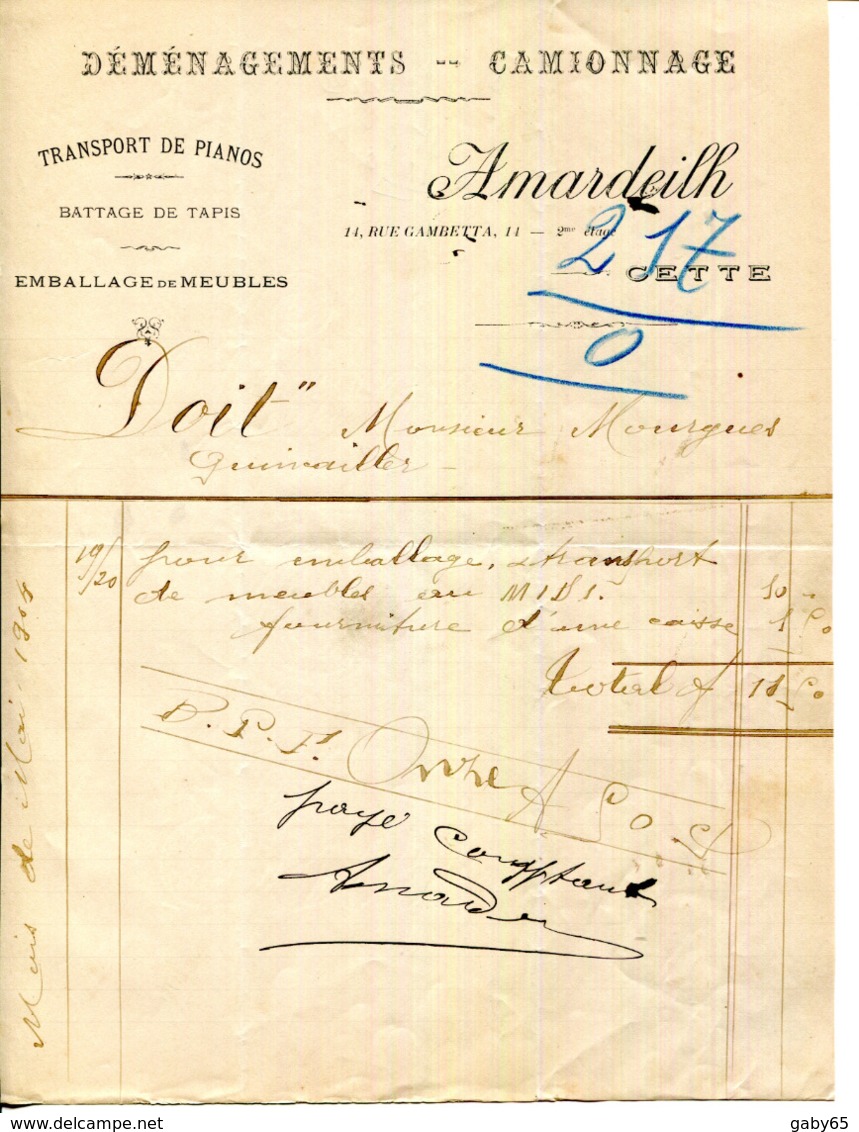 DÉMÉNAGEMENTS -- CAMIONNAGE
TRANSPORT DE PIANOS
BATTAGE DE TAPIS
EMBALLAGE DE MEUBLES
Amardeilh
14, RUE GAMBETTA, 14 — 2me étage
CETTE
217
0
Doit" Monsieur Mourgues
Quincailler -
Mois de Mai
19/20 pour emballage, transport
de meubles au MIDI. 10 -
fourniture d'une caisse 1 50
Total f 11 50
B. P. F. Onze f 50 c
payé comptant
delcampe.net
gaby65